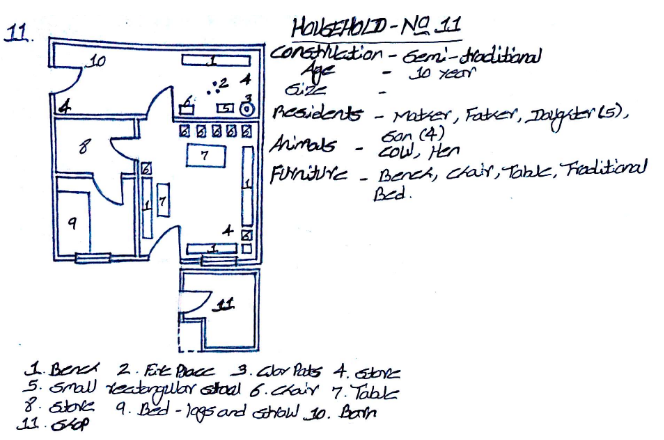 11.
HOUSEHOLD - No 11
Construction - Semi-traditional
Age - 10 year
Size -
Residents - Mother, Father, Daughter (5),
Son (4)
Animals - Cow, Hen
Furniture - Bench, Chair, Table, Traditional
Bed.
10 1
2 4
6 5 3
4
8 6 6 6 6 6
7
6
1 7 1
9
4 6
1
11
1. Bench 2. Fire Place 3. Clay Pots 4. Stone
5. Small rectangular stool 6. Chair 7. Table
8. Store 9. Bed - logs and straw 10. Barn
11. Shop